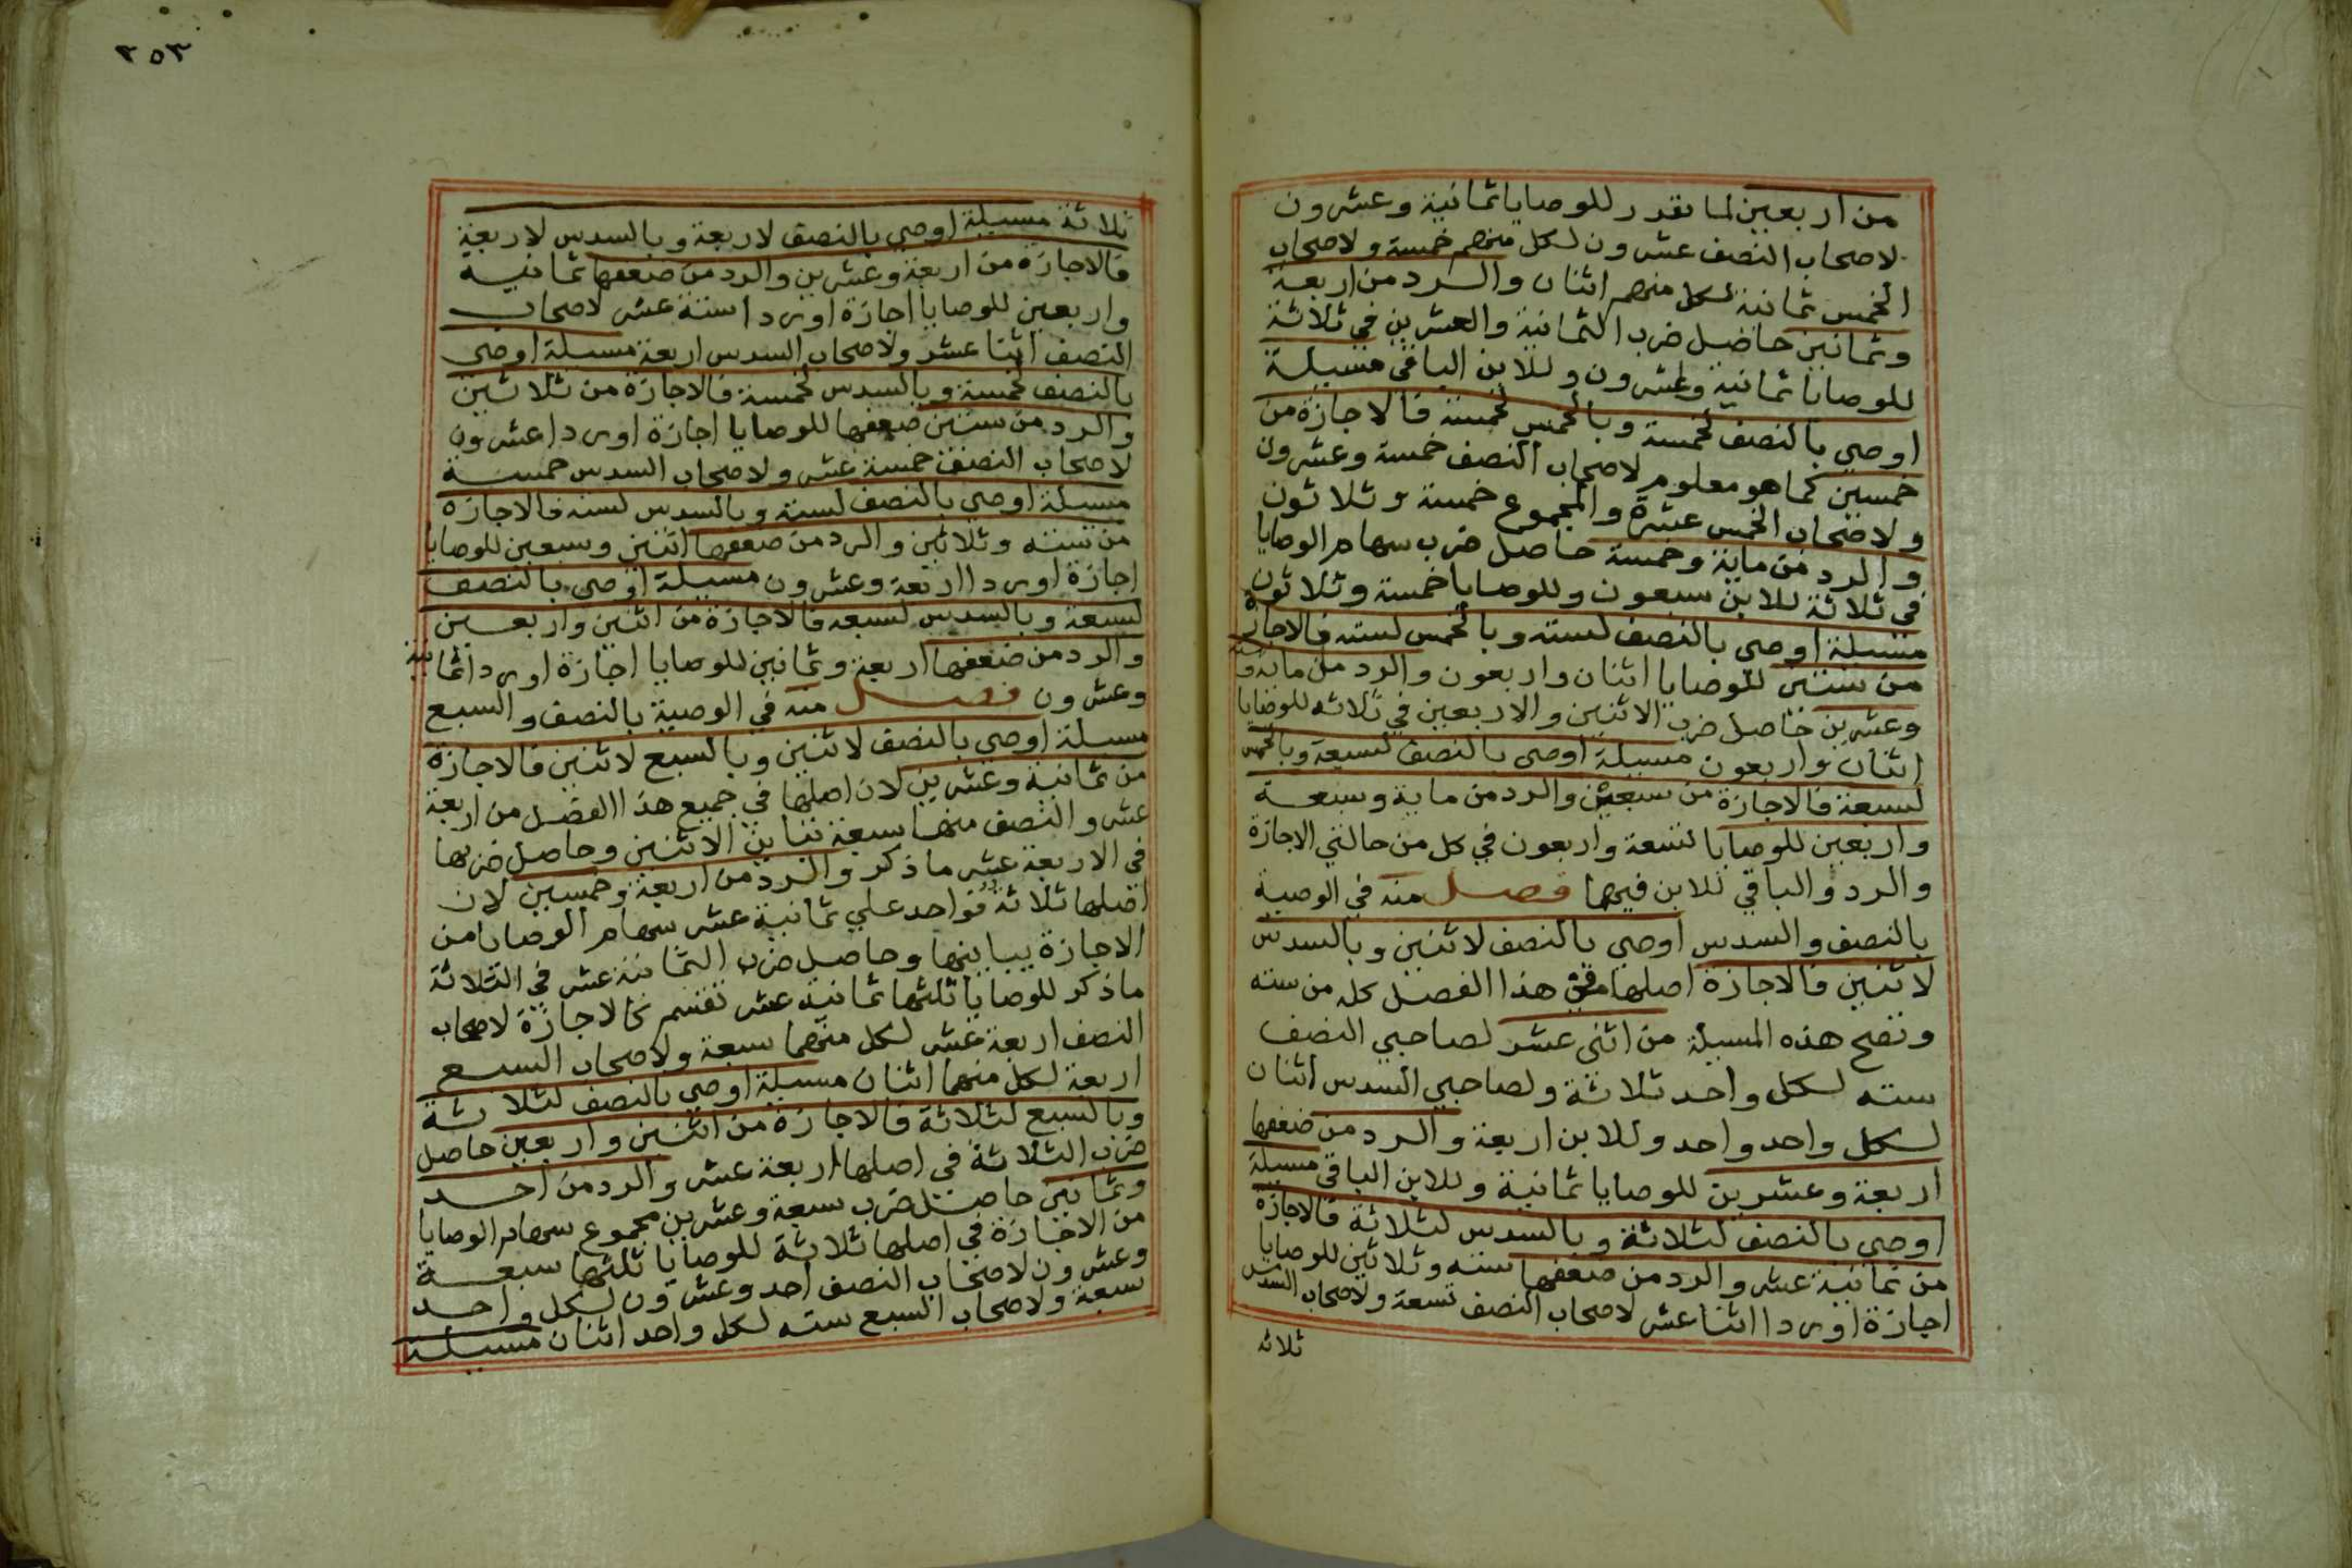 من اربعين لما تقدر للوصايا ثمانية وعشرون
لاصحاب النصف عشرون لكل منهم خمسة ولاصحاب
الخمس ثمانية لكل منهم اثنان والرد من اربعة
وثمانين حاصل ضرب الثمانية والعشرين في ثلاثة
للوصايا ثمانية وعشرون وللابن الباقي مسيلة
اوصي بالنصف لخمسة وبالخمس لخمسة فالاجازة من
خمسين كما هو معلوم لاصحاب النصف خمسة وعشرون
ولاصحاب الخمس عشرة والمجموع خمسة وثلاثون
والرد من ماية وخمسة حاصل ضرب سهام الوصايا
في ثلاثة للابن سبعون وللوصايا خمسة وثلاثون
مسيلة اوصي بالنصف لسته وبالخمس لسته فالاجازة
من ستين للوصايا اثنان واربعون والرد من ماية وستة
وعشرين حاصل ضرب الاثنين والاربعين في ثلاثه للوصايا
اثنان واربعون مسيلة اوصي بالنصف لسبعة وبالخمس
لسبعة فالاجازة من سبعين والرد من ماية وسبعة
واربعين للوصايا تسعة واربعون في كل من حالتي الاجازة
والرد والباقي للابن فيهما فصل منه في الوصية
بالنصف والسدس اوصي بالنصف لاثنين وبالسدس
لاثنين فالاجازة اصلها في هذا الفصل كله من سته
وتصح هذه المسيلة من اثني عشر لصاحبي النصف
سته لكل واحد ثلاثة ولصاحبي السدس اثنان
لكل واحد واحد وللابن اربعة والرد من ضعفها
اربعة وعشرين للوصايا ثمانية وللابن الباقي مسيلة
اوصي بالنصف لثلاثة وبالسدس لثلاثة فالاجازة
من ثمانية عشر والرد من ضعفها سته وثلاثين للوصايا
اجازة اوردا اثنا عشر لاصحاب النصف تسعة ولاصحاب السدس
ثلاثه
٢٥٣
ثلاثة مسيلة اوصي بالنصف لاربعة وبالسدس لاربعة
فالاجازة من اربعة وعشرين والرد من ضعفها ثمانية
واربعين للوصايا اجازة اوردا ستة عشر لاصحاب
النصف اثنا عشر ولاصحاب السدس اربعة مسيلة اوصي
بالنصف لخمسة وبالسدس لخمسة فالاجازة من ثلاثين
والرد من ستين ضعفها للوصايا اجازة اوردا عشرون
لاصحاب النصف خمسة عشر ولاصحاب السدس خمسة
مسيلة اوصي بالنصف لستة وبالسدس لسته فالاجازة
من سته وثلاثين والرد من ضعفها اثنين وسبعين للوصايا
اجازة اوردا اربعة وعشرون مسيلة اوصي بالنصف
لسبعة وبالسدس لسبعه فالاجازة من اثنين واربعين
والرد من ضعفها اربعة وثمانين للوصايا اجازة اوردا ثمانية
وعشرون فصل منه في الوصية بالنصف والسبع
مسيلة اوصي بالنصف لاثنين وبالسبع لاثنين فالاجازة
من ثمانية وعشرين لان اصلها في جميع هذا الفصل من اربعة
عشر والنصف منها سبعة تباين الاثنين وحاصل ضربها
في الاربعة عشر ما ذكر والرد من اربعة وخمسين لان
اصلها ثلاثة فواحد علي ثمانية عشر سهام الوصايا من
الاجازة يباينها وحاصل ضرب الثمانية عشر في الثلاثة
ما ذكر للوصايا ثلثها ثمانية عشر تقسم كالاجازة لاصحاب
النصف اربعة عشر لكل منهما سبعة ولاصحاب السبع
اربعة لكل منهما اثنان مسيلة اوصي بالنصف لثلاثة
وبالسبع لثلاثة فالاجازة من اثنين واربعين حاصل
ضرب الثلاثة في اصلها اربعة عشر والرد من احد
وثمانين حاصل ضرب سبعة وعشرين مجموع سهام الوصايا
من الاجازة في اصلها ثلاثة للوصايا ثلثها سبعة
وعشرون لاصحاب النصف احد وعشرون لكل واحد
سبعة ولاصحاب السبع سته لكل واحد اثنان مسيلة